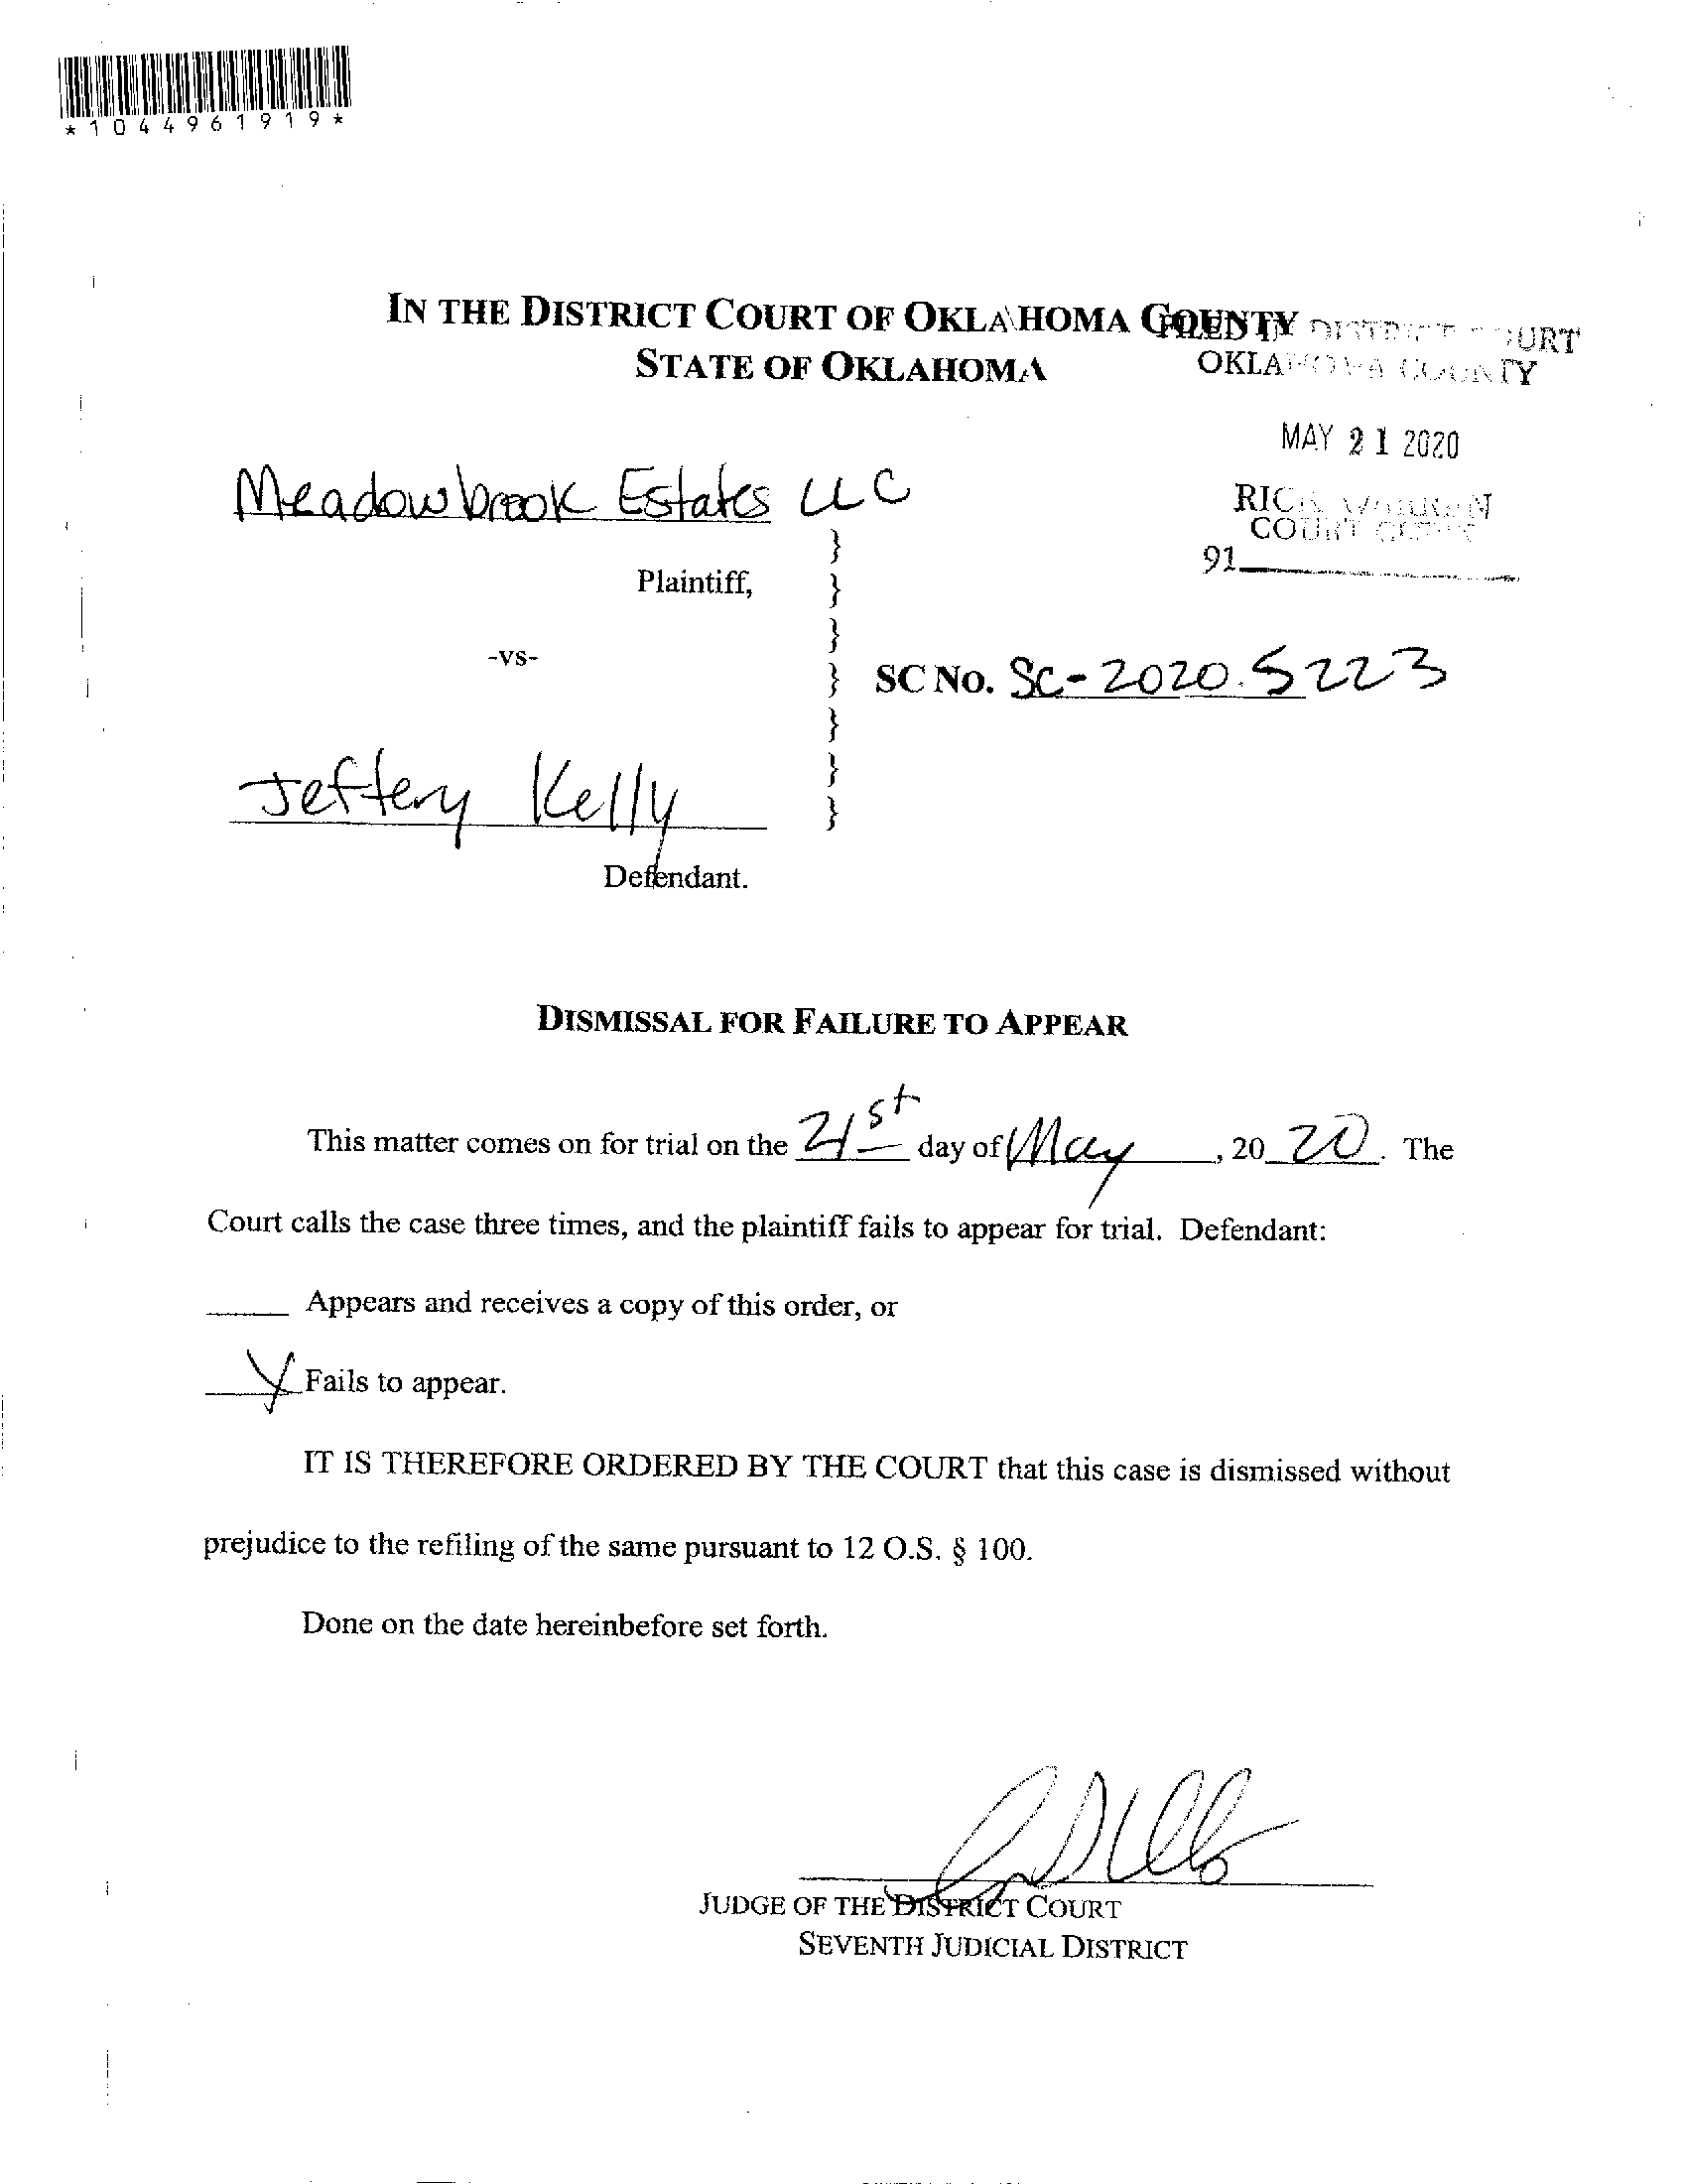 *1044961919*
IN THE DISTRICT COURT OF OKLAHOMA COUNTY
STATE OF OKLAHOMA
FILED IN DISTRICT COURT
OKLAHOMA COUNTY
MAY 21 2020
RICK WARREN
COURT CLERK
91
Meadowbrook Estates LLC
}
Plaintiff, }
}
-vs- } SC No. SC-2020-5223
}
}
Jeffery Kelly }
Defendant.
DISMISSAL FOR FAILURE TO APPEAR
This matter comes on for trial on the 21st day of May, 20 20. The
Court calls the case three times, and the plaintiff fails to appear for trial. Defendant:
Appears and receives a copy of this order, or
Fails to appear.
IT IS THEREFORE ORDERED BY THE COURT that this case is dismissed without
prejudice to the refiling of the same pursuant to 12 O.S. § 100.
Done on the date hereinbefore set forth.
JUDGE OF THE DISTRICT COURT
SEVENTH JUDICIAL DISTRICT